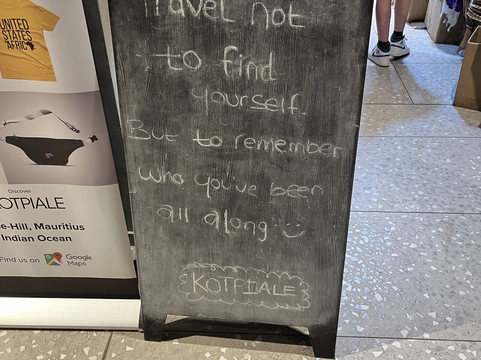 UNITED
STATES
AFRIC
Discover
OTPIALE
e-Hill, Mauritius
Indian Ocean
Find us on Google Maps
Travel not
to find
yourself.
But to remember
who you've been
all along
KOTPIALE